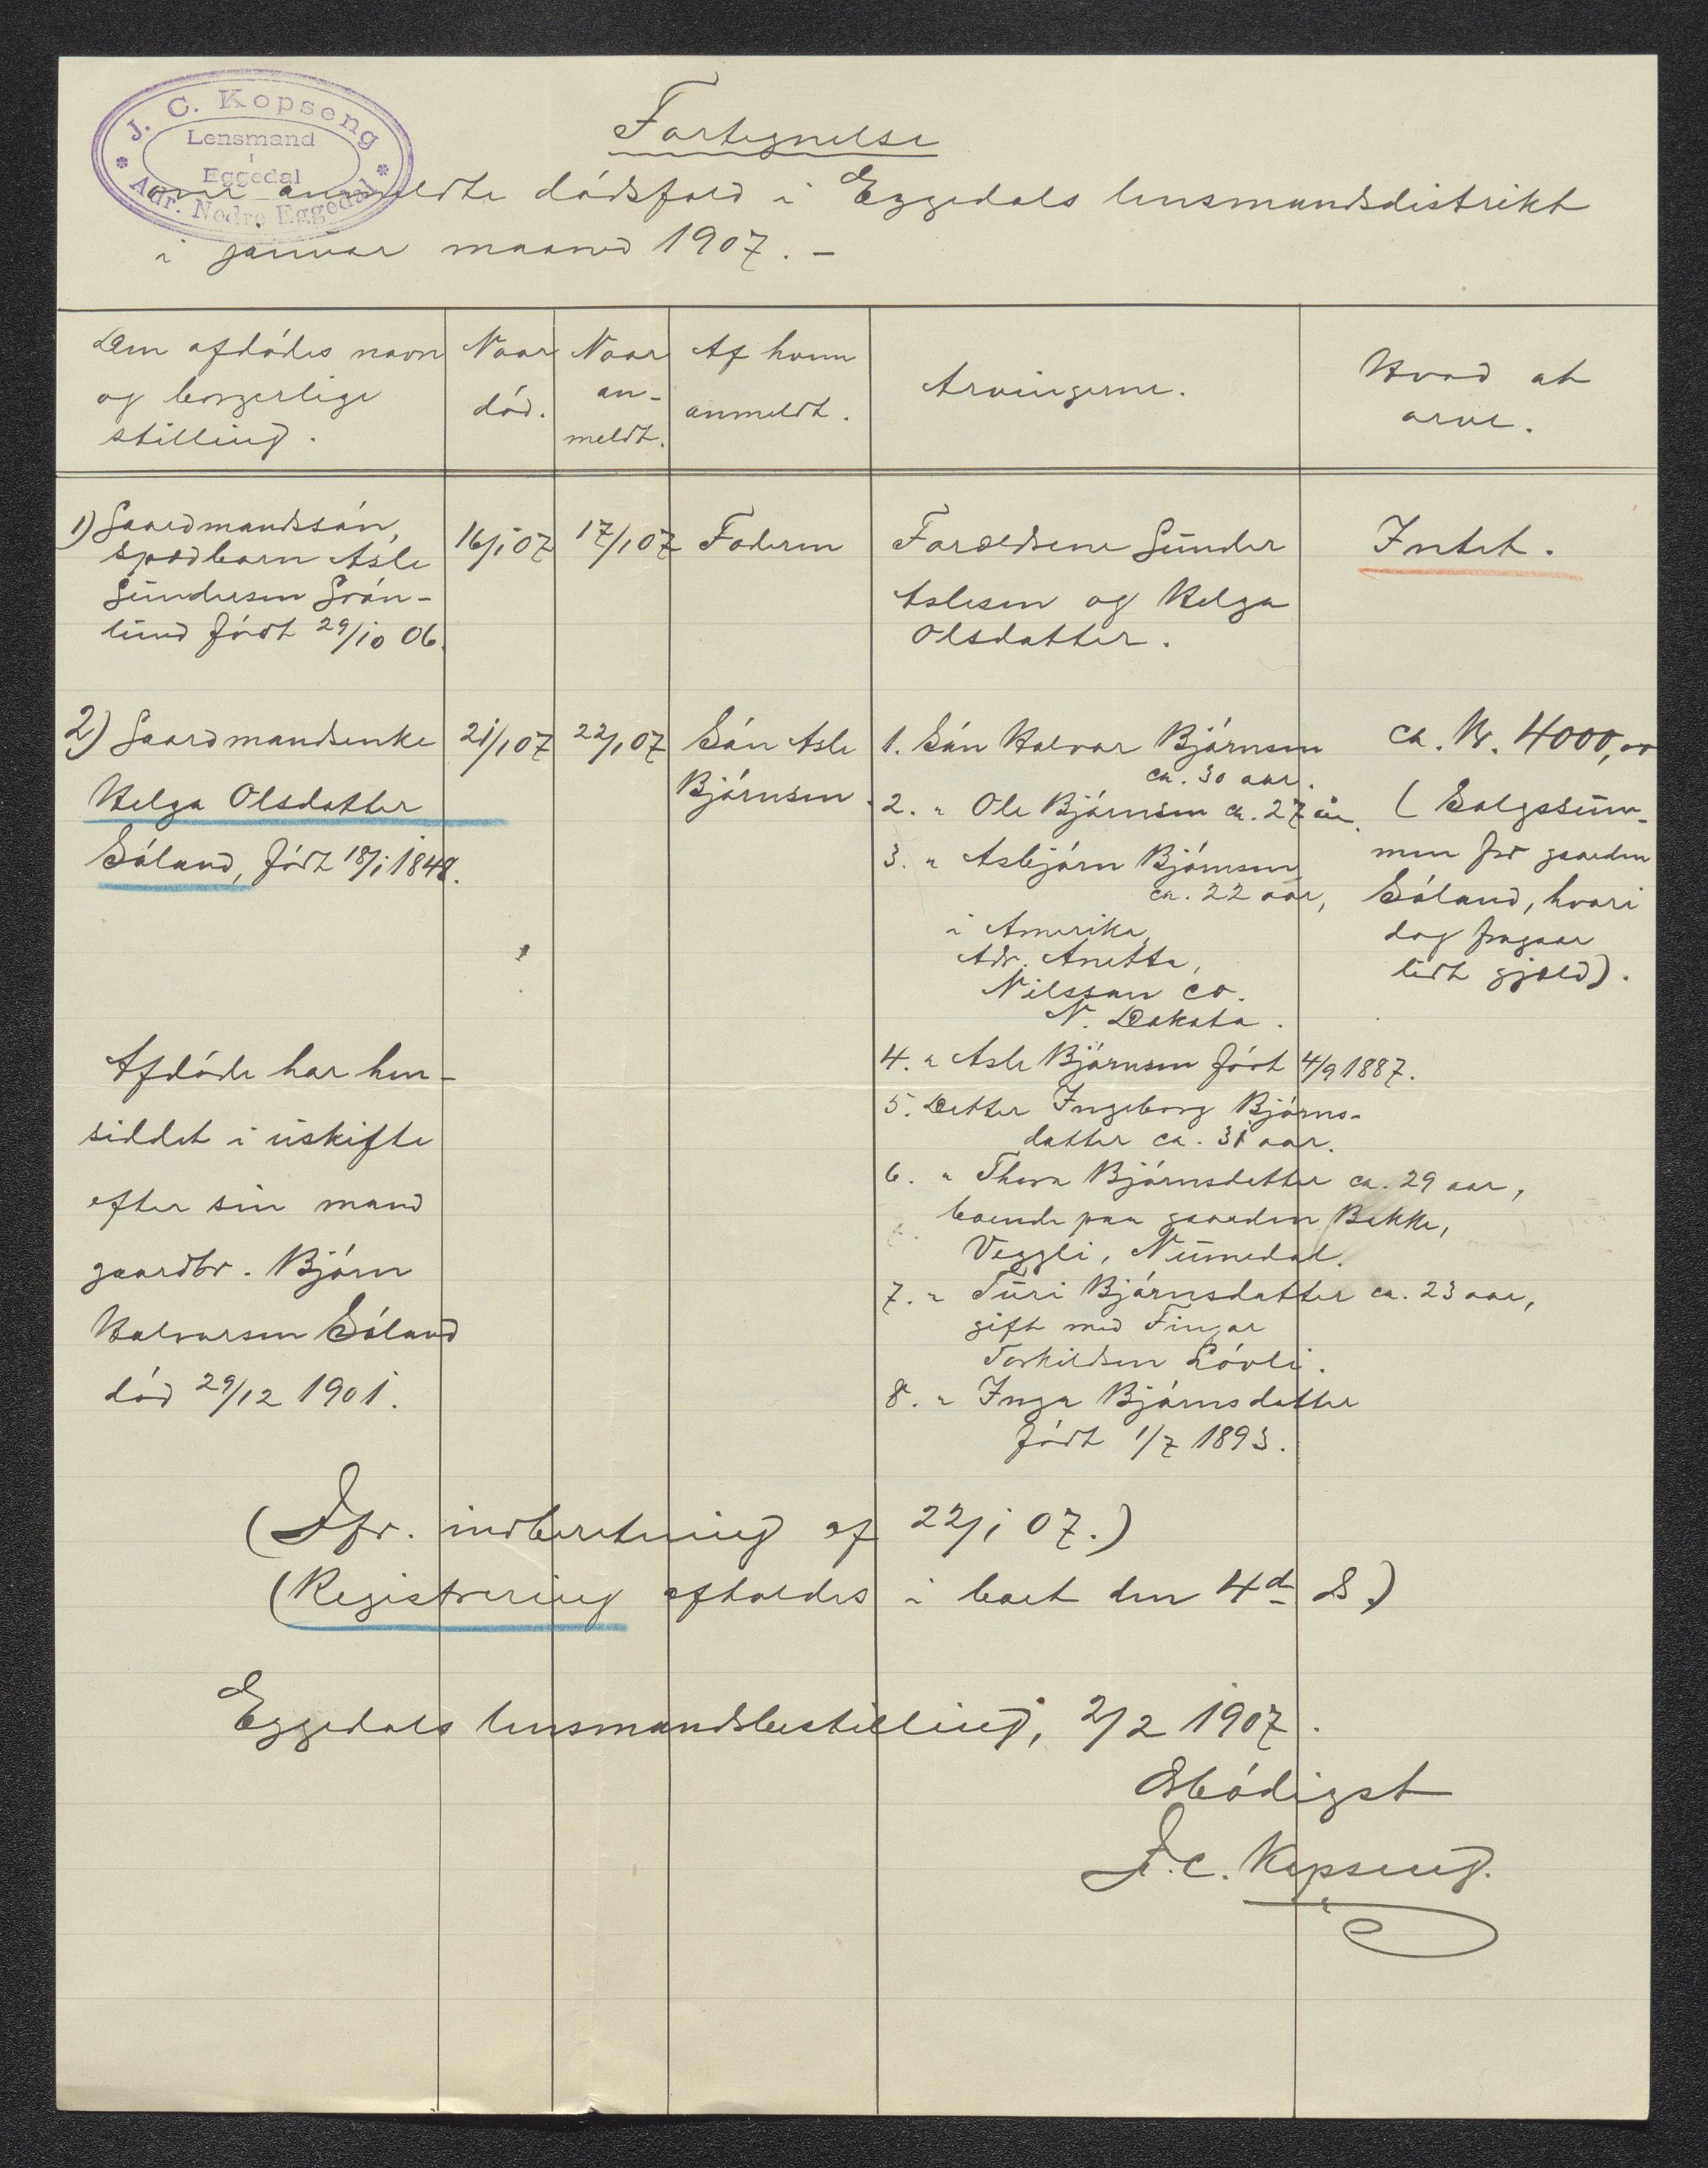 J. C. Kopseng
Lensmand
i
Eggedal
Adr. Nedre Eggedal
Fortegnelse
over anmeldte dødsfald i Eggedals lensmandsdistrikt
i januar maaned 1907. –
Den afdødes navn
og borgerlige
stilling.
Naar
død.
Naar
an-
meldt.
Af hvem
anmeldt.
Arvingerne.
Hvad at
arve.
1) Gaardmandssøn,
spædbarn Asle
Gundersen Grøn-
lund født 29/10 06.
16/1 07
17/1 07
Faderen
Forældrene Gunder
Aslesen og Helga
Olsdatter.
Intet.
2) Gaardmandsenke
Helga Olsdatter
Søland, født 18/1 1848.
21/1 07
22/1 07
Søn Asle
Bjørnsen.
1. Søn Halvor Bjørnsen
ca. 30 aar.
2. " Ole Bjørnsen ca. 27 år.
3. " Asbjørn Bjørnsen
ca. 22 aar,
i Amerika,
Adr. Anetta,
Nilsson co.
N. Dakota.
4. " Asle Bjørnsen født 4/9 1887.
5. Datter Ingeborg Bjørns-
datter ca. 31 aar.
6. " Thora Bjørnsdatter ca. 29 aar,
boende paa gaarden Bakke,
Veggli, Numedal.
7. " Turi Bjørnsdatter ca. 23 aar,
gift med Fingar
Torkildsen Løvli.
8. " Inga Bjørnsdatter
født 1/7 1893.
ca. Kr. 4000,00
(Salgssum-
men for gaarden
Søland, hvori
dog fragaar
lidt gjæld).
Afdøde har hen-
siddet i uskifte
efter sin mand
gaardbr. Bjørn
Halvorsen Søland
død 29/12 1901.
(Jfr. indberetning af 22/1 07.)
(Registrering afholdes i boet den 4de ds.)
Eggedals lensmandsbestilling, 2/2 1907.
Ærbødigst
J. C. Kopseng.